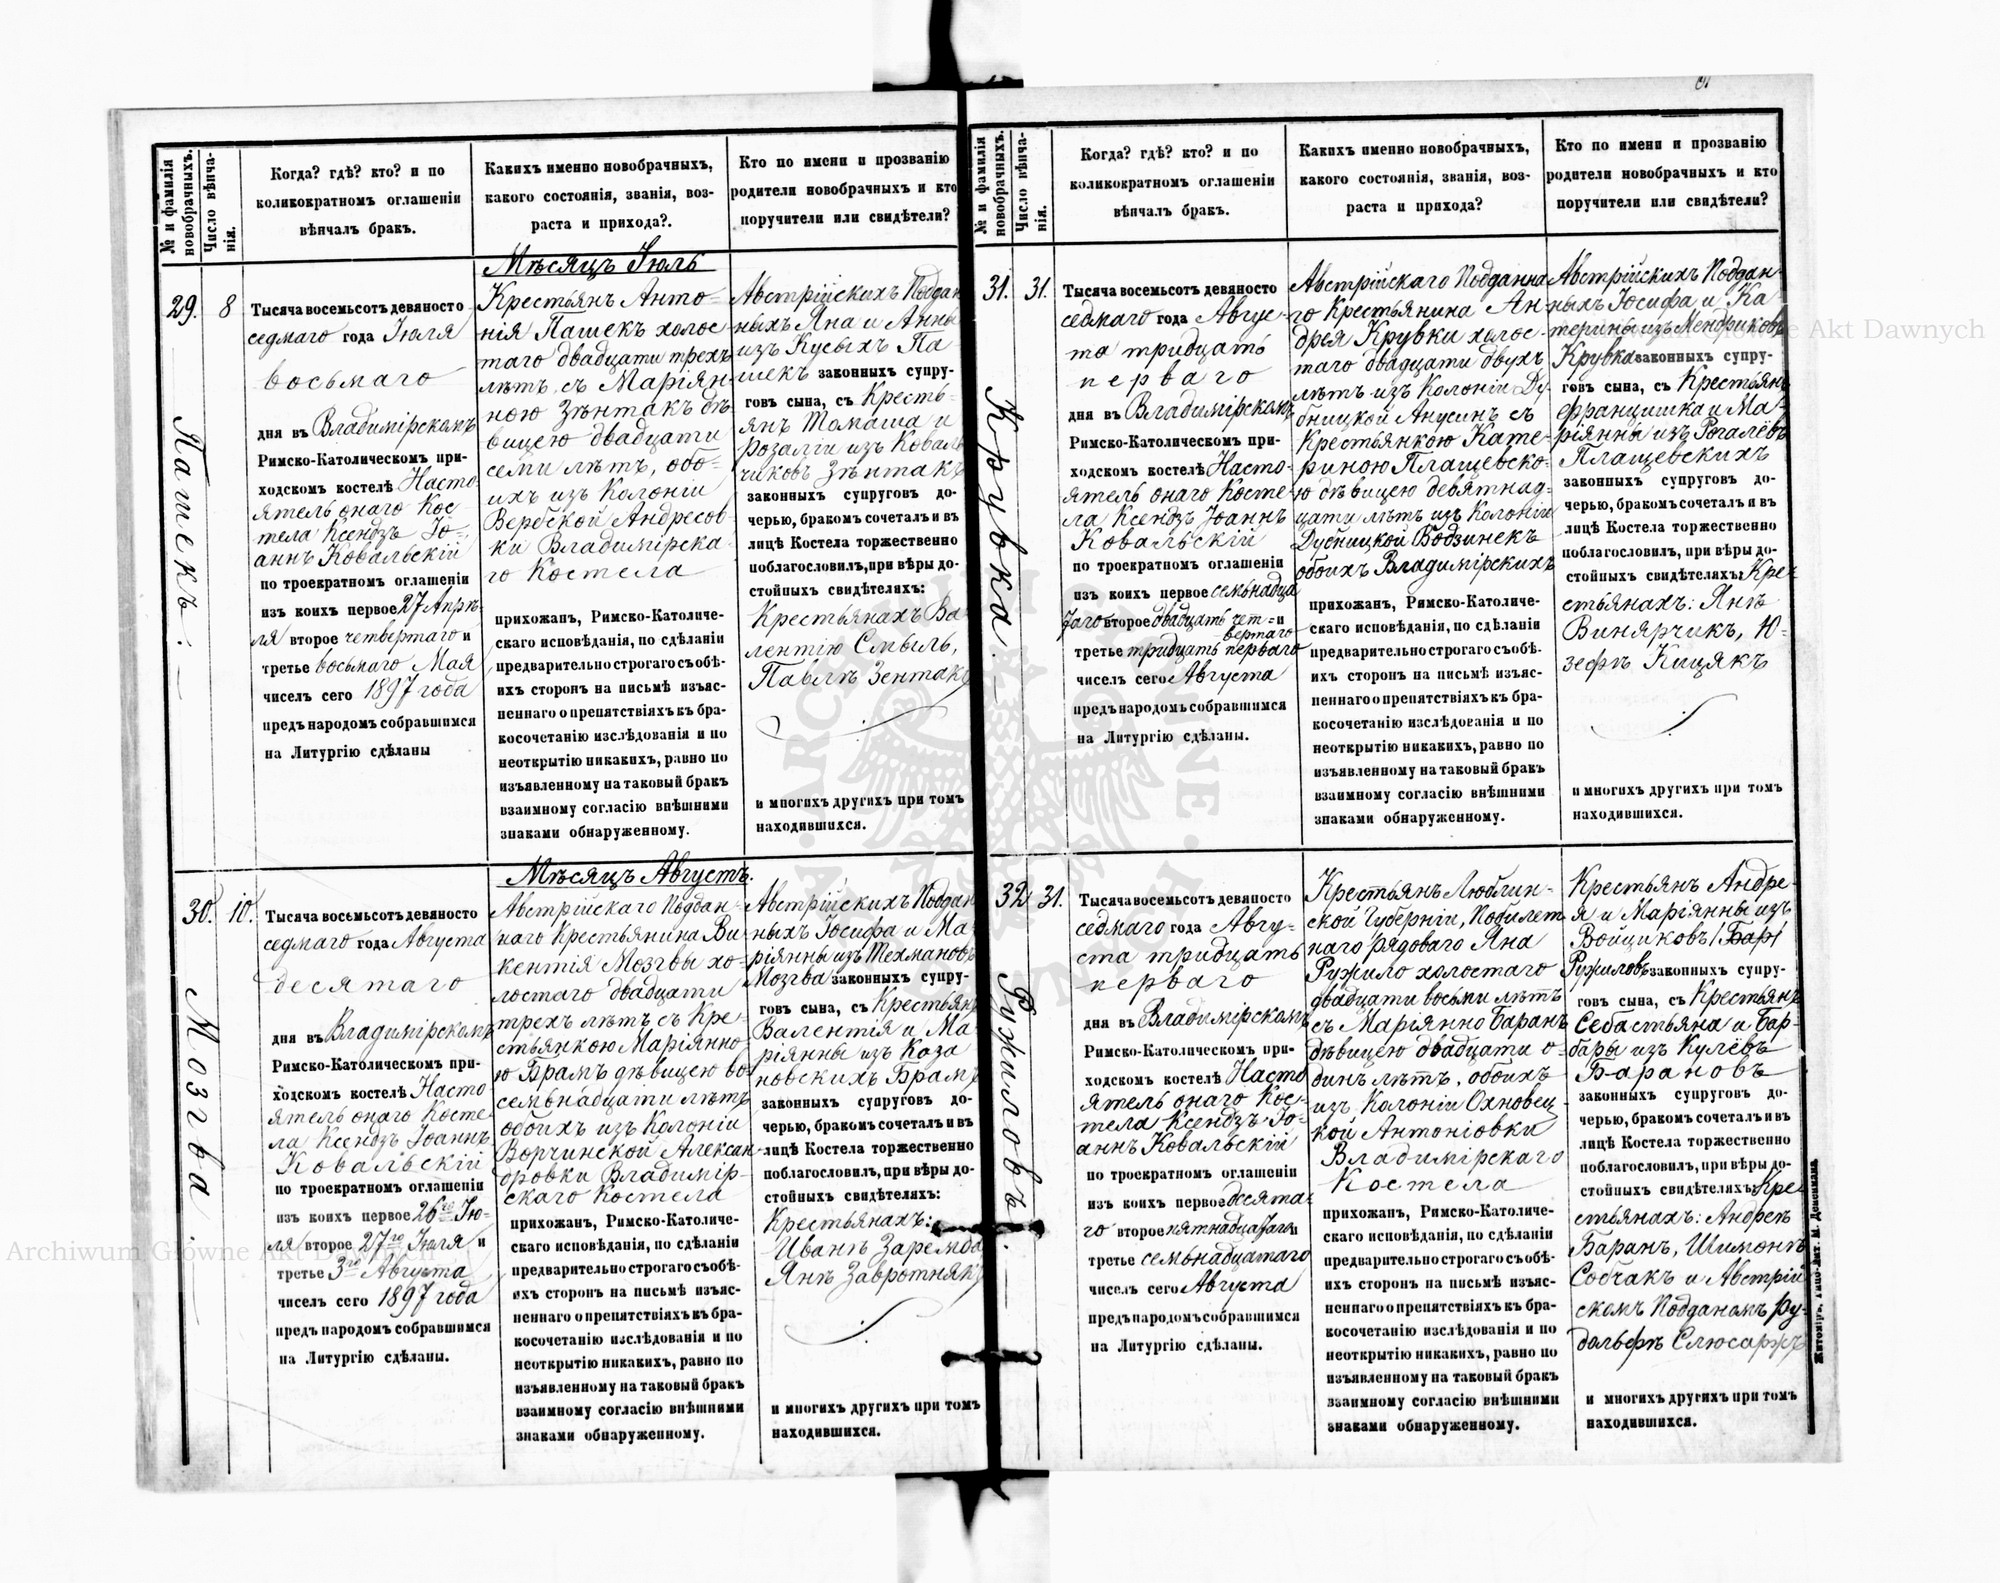 № и фамилія новобрачныхъ.
Число вѣнчанія.
Когда? гдѣ? кто? и по
коликократномъ оглашеніи
вѣнчалъ бракъ.
Какихъ именно новобрачныхъ,
какого состоянія, званія, воз-
раста и прихода?.
Кто по имени и прозванію
родители новобрачныхъ и кто
поручители или свидѣтели?
Мѣсяцъ Іюль
29.
Пашекъ.
8
Тысяча восемьсотъ девяносто
седмаго года Іюля
восьмаго
дня въ Владимірскомъ
Римско-Католическомъ при-
ходскомъ костелѣ Насто
ятель онаго Кос
тела Ксендзъ Іо-
аннъ Ковальскій
по троекратномъ оглашеніи
изъ коихъ первое 27 Апрѣ-
ля второе четвертаго и
третье восьмаго Мая
чиселъ сего 1897 года
предъ народомъ собравшимся
на Литургію сдѣланы
Крестьянъ Анто-
нія Пашекъ холос
таго двадцати трехъ
лѣтъ, съ Маріян-
ною Зѣнтакъ дѣ-
вицею двадцати
семи лѣтъ, обо-
ихъ изъ Колоніи
Вербской Андресов-
ки Владимірска-
го Костела
прихожанъ, Римско-Католиче-
скаго исповѣданія, по сдѣланіи
предварительно строгаго съ обѣ-
ихъ сторонъ на письмѣ изъяс-
неннаго о препятствіяхъ къ бра-
косочетанію изслѣдованія и по
неоткрытію никакихъ, равно по
изъявленному на таковый бракъ
взаимному согласію внѣшними
знаками обнаруженному.
Австрійскихъ Поддан
ныхъ Яна и Анны
изъ Кусыхъ Па
шекъ законныхъ супру-
говъ сына, съ Кресть-
янъ Томаша и
Розаліи изъ Коваль
чиковъ Зѣнтакъ
законныхъ супруговъ до-
черью, бракомъ сочеталъ и въ
лицѣ Костела торжественно
поблагословилъ, при вѣры до-
стойныхъ свидѣтеляхъ:
Крестьянахъ Ва
лентію Смыль,
Павлѣ Зентакъ
и многихъ другихъ при томъ
находившихся.
Мѣсяцъ Августъ.
30.
Мозгва.
10.
Тысяча восемьсотъ девяносто
седмаго года Августа
десятаго
дня въ Владимірскомъ
Римско-Католическомъ при-
ходскомъ костелѣ Насто
ятель онаго Косте
ла Ксендзъ Іоаннъ
Ковальскій
по троекратномъ оглашеніи
изъ коихъ первое 26го Ію-
ля второе 27го Іюля и
третье 3го Августа
чиселъ сего 1897 года
предъ народомъ собравшимся
на Литургію сдѣланы.
Австрійскаго Поддан-
наго Крестьянина Ви-
кентія Мозгвы хо-
лостаго двадцати
трехъ лѣтъ съ Кре-
стьянкою Маріянно-
ю Брамъ дѣвицею во-
семьнадцати лѣтъ
обоихъ изъ Колоніи
Ворчинской Алексан-
дровки Владимір-
скаго Костела
прихожанъ, Римско-Католиче-
скаго исповѣданія, по сдѣланіи
предварительно строгаго съ обѣ-
ихъ сторонъ на письмѣ изъяс-
неннаго о препятствіяхъ къ бра-
косочетанію изслѣдованія и по
неоткрытію никакихъ, равно по
изъявленному на таковый бракъ
взаимному согласію внѣшними
знаками обнаруженному.
Австрійскихъ Поддан
ныхъ Іосифа и Ма
ріянны изъ Техмановъ
Мозгва законныхъ супру-
говъ сына, съ Крестьянъ
Валентія и Ма-
ріянны изъ Каза
новскихъ Брамъ
законныхъ супруговъ до-
черью, бракомъ сочеталъ и въ
лицѣ Костела торжественно
поблагословилъ, при вѣры до-
стойныхъ свидѣтеляхъ:
Крестьянахъ:
Иванѣ Заремба
Янѣ Завротнякъ
и многихъ другихъ при томъ
находившихся.
№ и фамилія новобрачныхъ.
Число вѣнчанія.
Когда? гдѣ? кто? и по
коликократномъ оглашеніи
вѣнчалъ бракъ.
Какихъ именно новобрачныхъ,
какого состоянія, званія, воз-
раста и прихода?
Кто по имени и прозванію
родители новобрачныхъ и кто
поручители или свидѣтели?
31.
Крувка.
31.
Тысяча восемьсотъ девяносто
седмаго года Авгус-
та тридцать
перваго
дня въ Владимірскомъ
Римско-Католическомъ при-
ходскомъ костелѣ Насто-
ятель онаго Косте-
ла Ксендзъ Іоаннъ
Ковальскій
по троекратномъ оглашеніи
изъ коихъ первое семьнадца
таго второе двадцать чет-
вертаго и
третье тридцать перваго
чиселъ сего Августа
предъ народомъ собравшимся
на Литургію сдѣланы.
Австрійскаго Подданна
го Крестьянина Ан-
дрея Крувки холос-
таго двадцати двухъ
лѣтъ изъ Колоніи Ду-
бницкой Анусинъ съ
Крестьянкою Кате-
риною Плащевско-
ю дѣвицею девятнад-
цати лѣтъ изъ Колоніи
Дубницкой Водзинекъ
обоихъ Владимірскихъ
прихожанъ, Римско-Католиче-
скаго исповѣданія, по сдѣланіи
предварительно строгаго съ обѣ-
ихъ сторонъ на письмѣ изъяс-
неннаго о препятствіяхъ къ бра-
косочетанію изслѣдованія и по
неоткрытію никакихъ, равно по
изъявленному на таковый бракъ
взаимному согласію внѣшними
знаками обнаруженному.
Австрійскихъ Поддан-
ныхъ Іосифа и Ка
терины изъ Мендриковъ
Крувка законныхъ супру-
говъ сына, съ Крестьянъ
Францишка и Ма-
ріянны изъ Рогалёвъ
Плащевскихъ
законныхъ супруговъ до-
черью, бракомъ сочеталъ и въ
лицѣ Костела торжественно
поблагословилъ, при вѣры до-
стойныхъ свидѣтеляхъ: Кре-
стьянахъ: Янѣ
Винярчикъ, Ю-
зефѣ Кицякъ
и многихъ другихъ при томъ
находившихся.
32.
Ружиловъ.
31.
Тысяча восемьсотъ девяносто
седмаго года Авгу-
ста тридцать
перваго
дня въ Владимірскомъ
Римско-Католическомъ при-
ходскомъ костелѣ Насто
ятель онаго Кос-
тела Ксендзъ Іо-
аннъ Ковальскій
по троекратномъ оглашеніи
изъ коихъ первое десята-
го второе пятнадцатаго и
третье семьнадцатаго
чиселъ сего Августа
предъ народомъ собравшимся
на Литургію сдѣланы.
Крестьянъ Люблин-
ской Губерніи, Побилет
наго рядоваго Яна
Ружило холостаго
двадцати восьми лѣтъ
съ Маріянно Баранъ
дѣвицею двадцати о-
динъ лѣтъ, обоихъ
изъ Колоніи Охновец-
кой Антоніовки
Владимірскаго
Костела
прихожанъ, Римско-Католиче-
скаго исповѣданія, по сдѣланіи
предварительно строгаго съ обѣ-
ихъ сторонъ на письмѣ изъяс-
неннаго о препятствіяхъ къ бра-
косочетанію изслѣдованія и по
неоткрытію никакихъ, равно по
изъявленному на таковый бракъ
взаимному согласію внѣшними
знаками обнаруженному.
Крестьянъ Андре-
я и Маріянны изъ
Войциковъ
Ружиловъ законныхъ супру-
говъ сына, съ Крестьянъ
Себастьяна и Бар-
бары изъ Кулёвъ
Барановъ
законныхъ супруговъ до-
черью, бракомъ сочеталъ и въ
лицѣ Костела торжественно
поблагословилъ, при вѣры до-
стойныхъ свидѣтеляхъ: Кре-
стьянахъ: Андреѣ
Баранъ, Шимонѣ
Собчакъ и Австрій
скомъ Подданомъ Ру-
дольфѣ Слюсаржъ
и многихъ другихъ при томъ
находившихся.
Житоміръ, Типо-Лит. М. Дененмана
Archiwum Główne Akt Dawnych
Archiwum Główne Akt Dawnych
ARCHIWUM GŁÓWNE AKT DAWNYCH